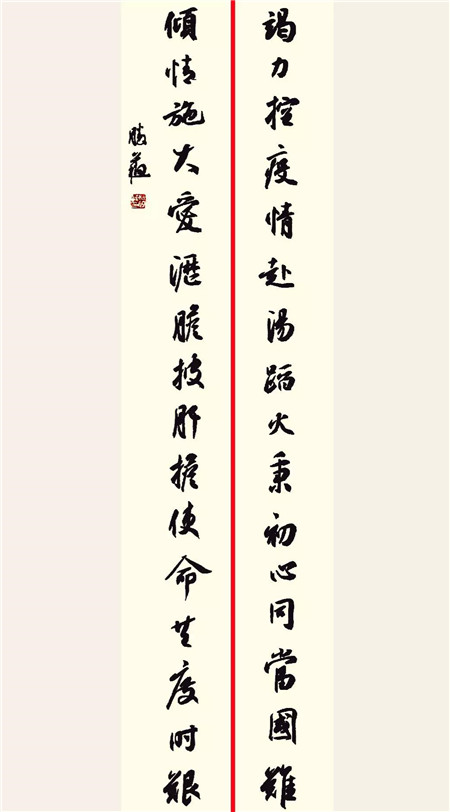 竭力控疫情赴湯蹈火秉初心同當國難
傾情施大愛瀝膽披肝擔使命共度时艱